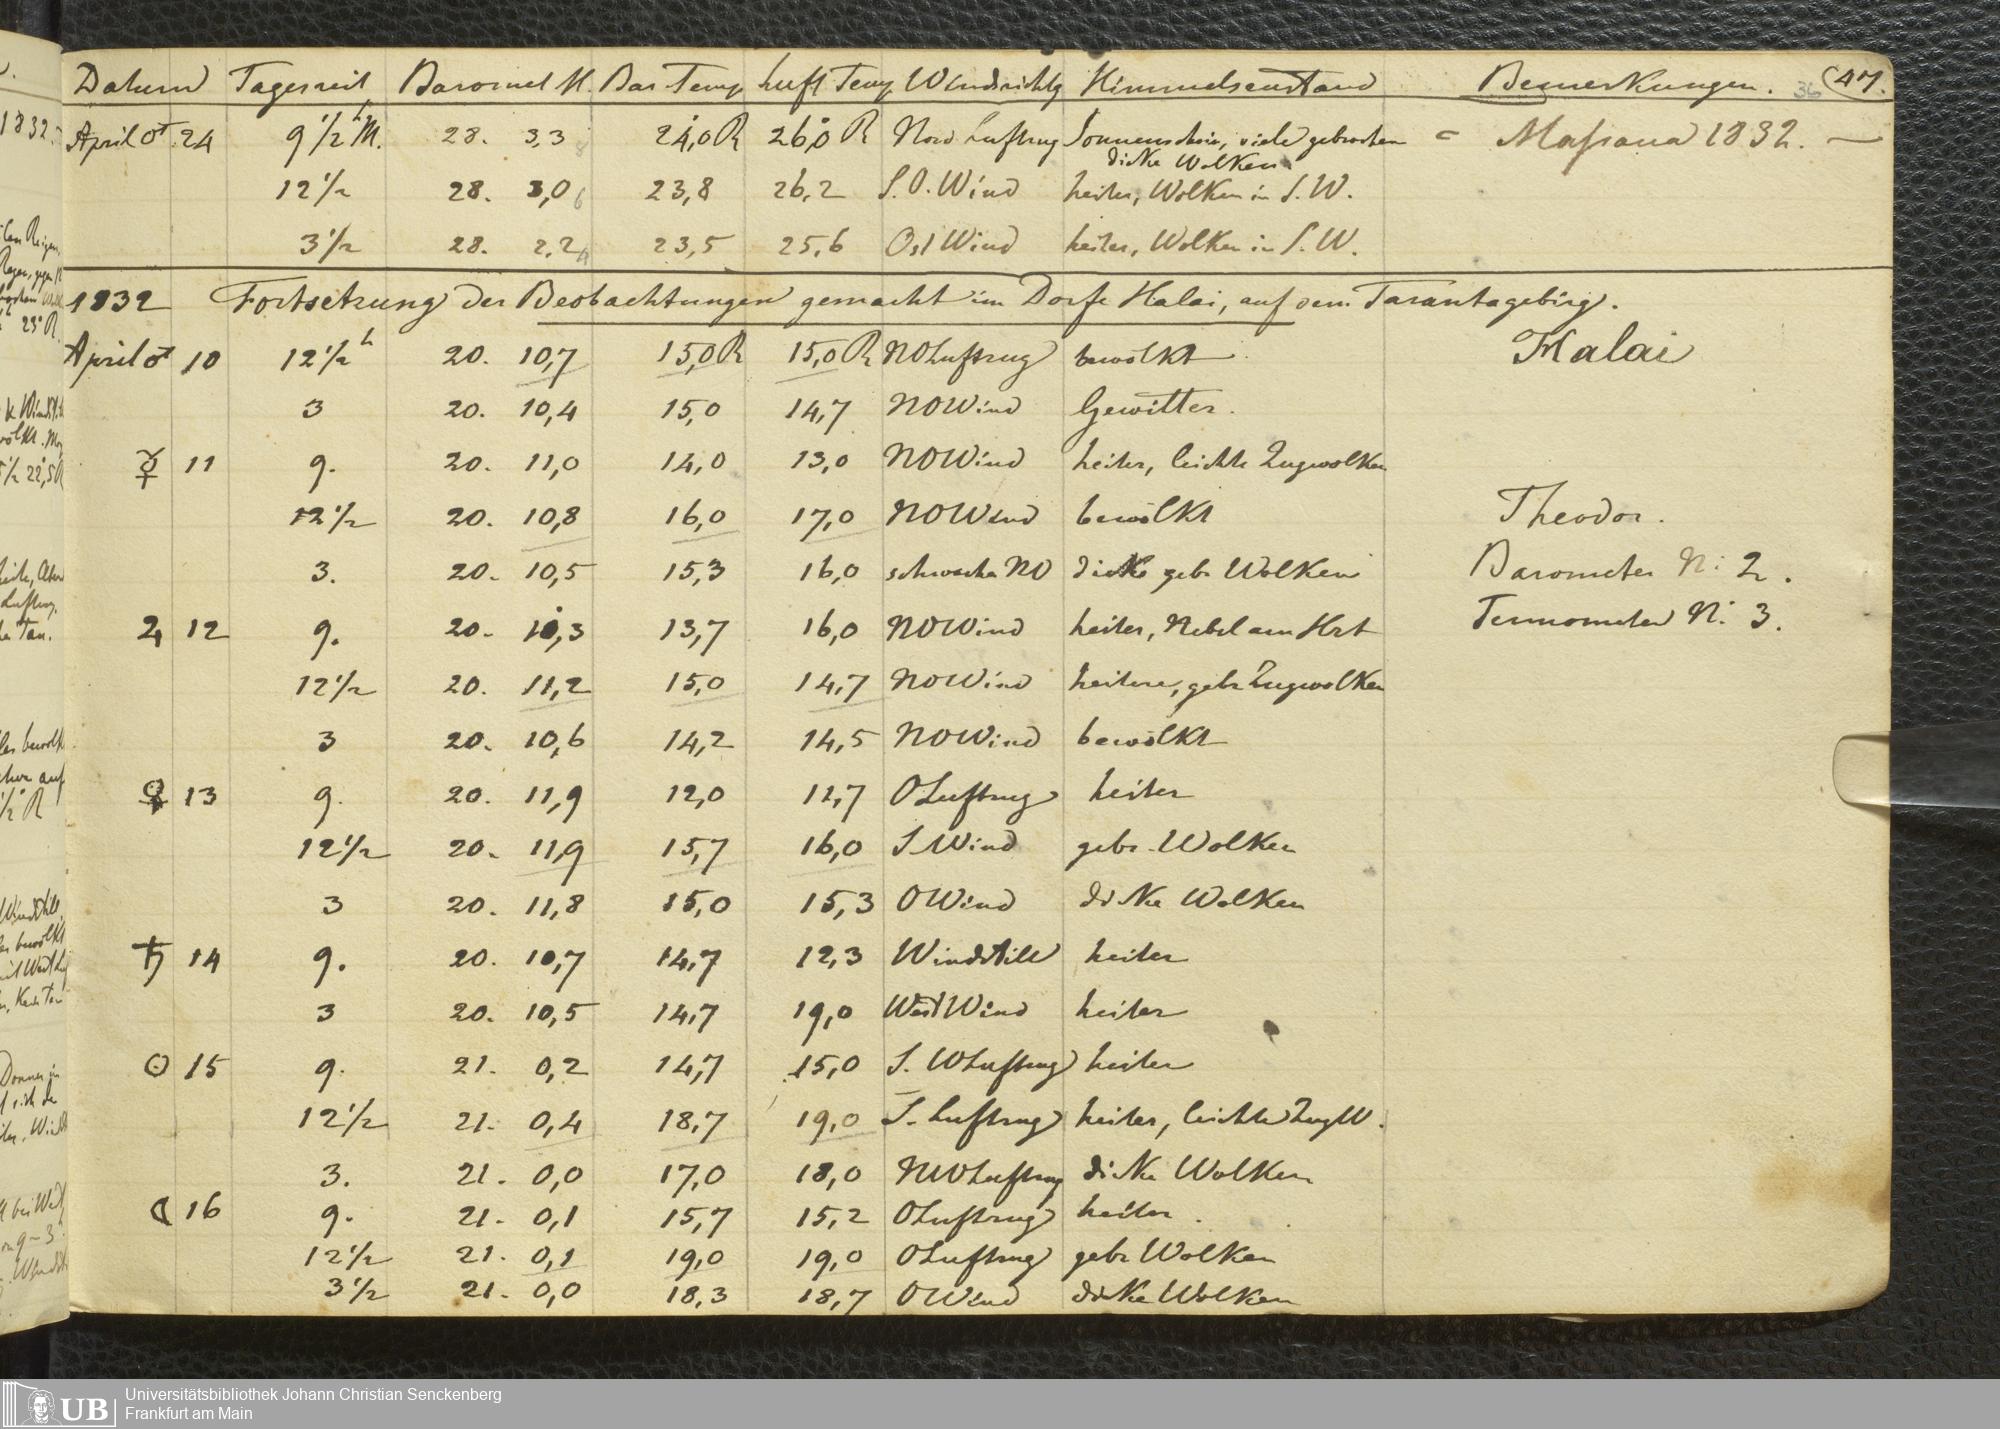 Datum Tageszeit Baromet H. Bar Temp Luft Temp Windrichtg Himmelszustand Bemerkungen. 36 47.
April ♂ 24 9 1/2 h M. 28. 3,3 24,0 R 26,0 R Nord Luftzug Sonnenschein, viele gebrochen = Massaua 1832. —
dicke Wolken
12 1/2 28. 3,0 6 23,8 26,2 S.O. Wind heiter, Wolken in S.W.
3 1/2 28. 2,2 23,5 25,6 Ost Wind heiter, Wolken in S.W.
1832 Fortsetzung der Beobachtungen gemacht im Dorfe Halai, auf dem Tarantagebirg.
April ♂ 10 12 1/2 h 20. 10,7 15,0 R 15,0 R NO Luftzug bewölkt Halai
3 20. 10,4 15,0 14,7 NO Wind Gewitter.
☿ 11 9. 20. 11,0 14,0 13,0 NO Wind heiter, leichte Zugwolken
12 1/2 20. 10,8 16,0 17,0 NO Wind bewölkt Theodor.
3. 20. 10,5 15,3 16,0 schwacher NO dicke gebr Wolken Barometer N: 2.
♃ 12 9. 20. 10,3 13,7 16,0 NO Wind heiter, Nebel am Hrt Termometer N: 3.
12 1/2 20. 11,2 15,0 14,7 NO Wind heitere, gebr Zugwolken
3 20. 10,6 14,2 14,5 NO Wind bewölkt
♀ 13 9. 20. 11,9 12,0 11,7 O Luftzug heiter
12 1/2 20. 11,9 15,7 16,0 S. Wind gebr. Wolken
3 20. 11,8 15,0 15,3 O Wind dicke Wolken
♄ 14 9. 20. 10,7 14,7 12,3 Windstill heiter
3 20. 10,5 14,7 19,0 West Wind heiter
☉ 15 9. 21. 0,2 14,7 15,0 S. W Luftzug heiter
12 1/2 21. 0,4 18,7 19,0 S. Luftzug heiter, leichte Zug W.
3. 21. 0,0 17,0 18,0 NW Luftzug dicke Wolken
☾ 16 9. 21. 0,1 15,7 15,2 O Luftzug heiter.
12 1/2 21. 0,1 19,0 19,0 O Luftzug gebr Wolken
3 1/2 21. 0,0 18,3 18,7 O Wind dicke Wolken
UB Universitätsbibliothek Johann Christian Senckenberg
Frankfurt am Main